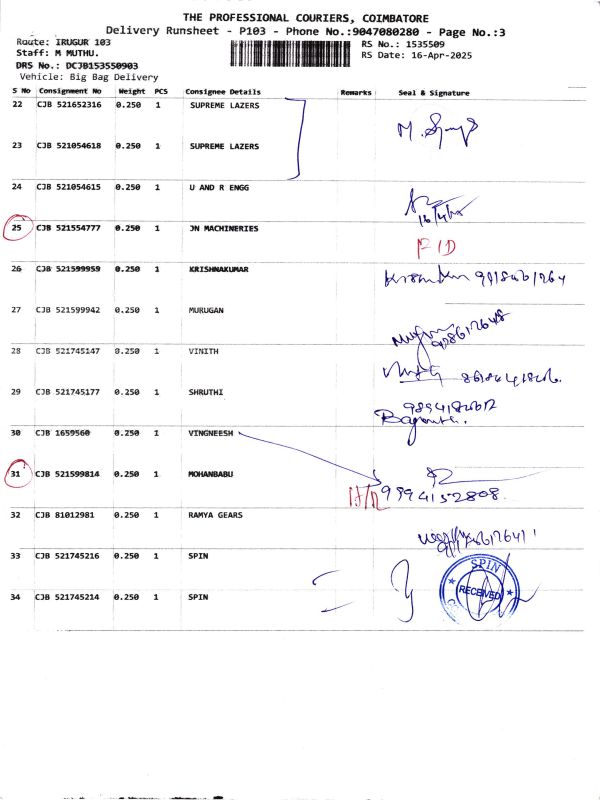 THE PROFESSIONAL COURIERS, COIMBATORE
Delivery Runsheet - P103 - Phone No.:9047080280 - Page No.:3
Route: IRUGUR 103
Staff: M MUTHU.
DRS No.: DCJB153550903
Vehicle: Big Bag Delivery
RS No.: 1535509
RS Date: 16-Apr-2025
S No Consignment No Weight PCS Consignee Details Remarks Seal & Signature
22 CJB 521652316 0.250 1 SUPREME LAZERS
23 CJB 521054618 0.250 1 SUPREME LAZERS
24 CJB 521054615 0.250 1 U AND R ENGG
25 CJB 521554777 0.250 1 JN MACHINERIES
26 CJB 521599959 0.250 1 KRISHNAKUMAR
27 CJB 521599942 0.250 1 MURUGAN
28 CJB 521745147 0.250 1 VINITH
29 CJB 521745177 0.250 1 SHRUTHI
30 CJB 1659560 0.250 1 VINGNEESH
31 CJB 521599814 0.250 1 MOHANBABU
9994152808.
32 CJB 81012981 0.250 1 RAMYA GEARS
33 CJB 521745216 0.250 1 SPIN
34 CJB 521745214 0.250 1 SPIN
SPIN
RECEIVED